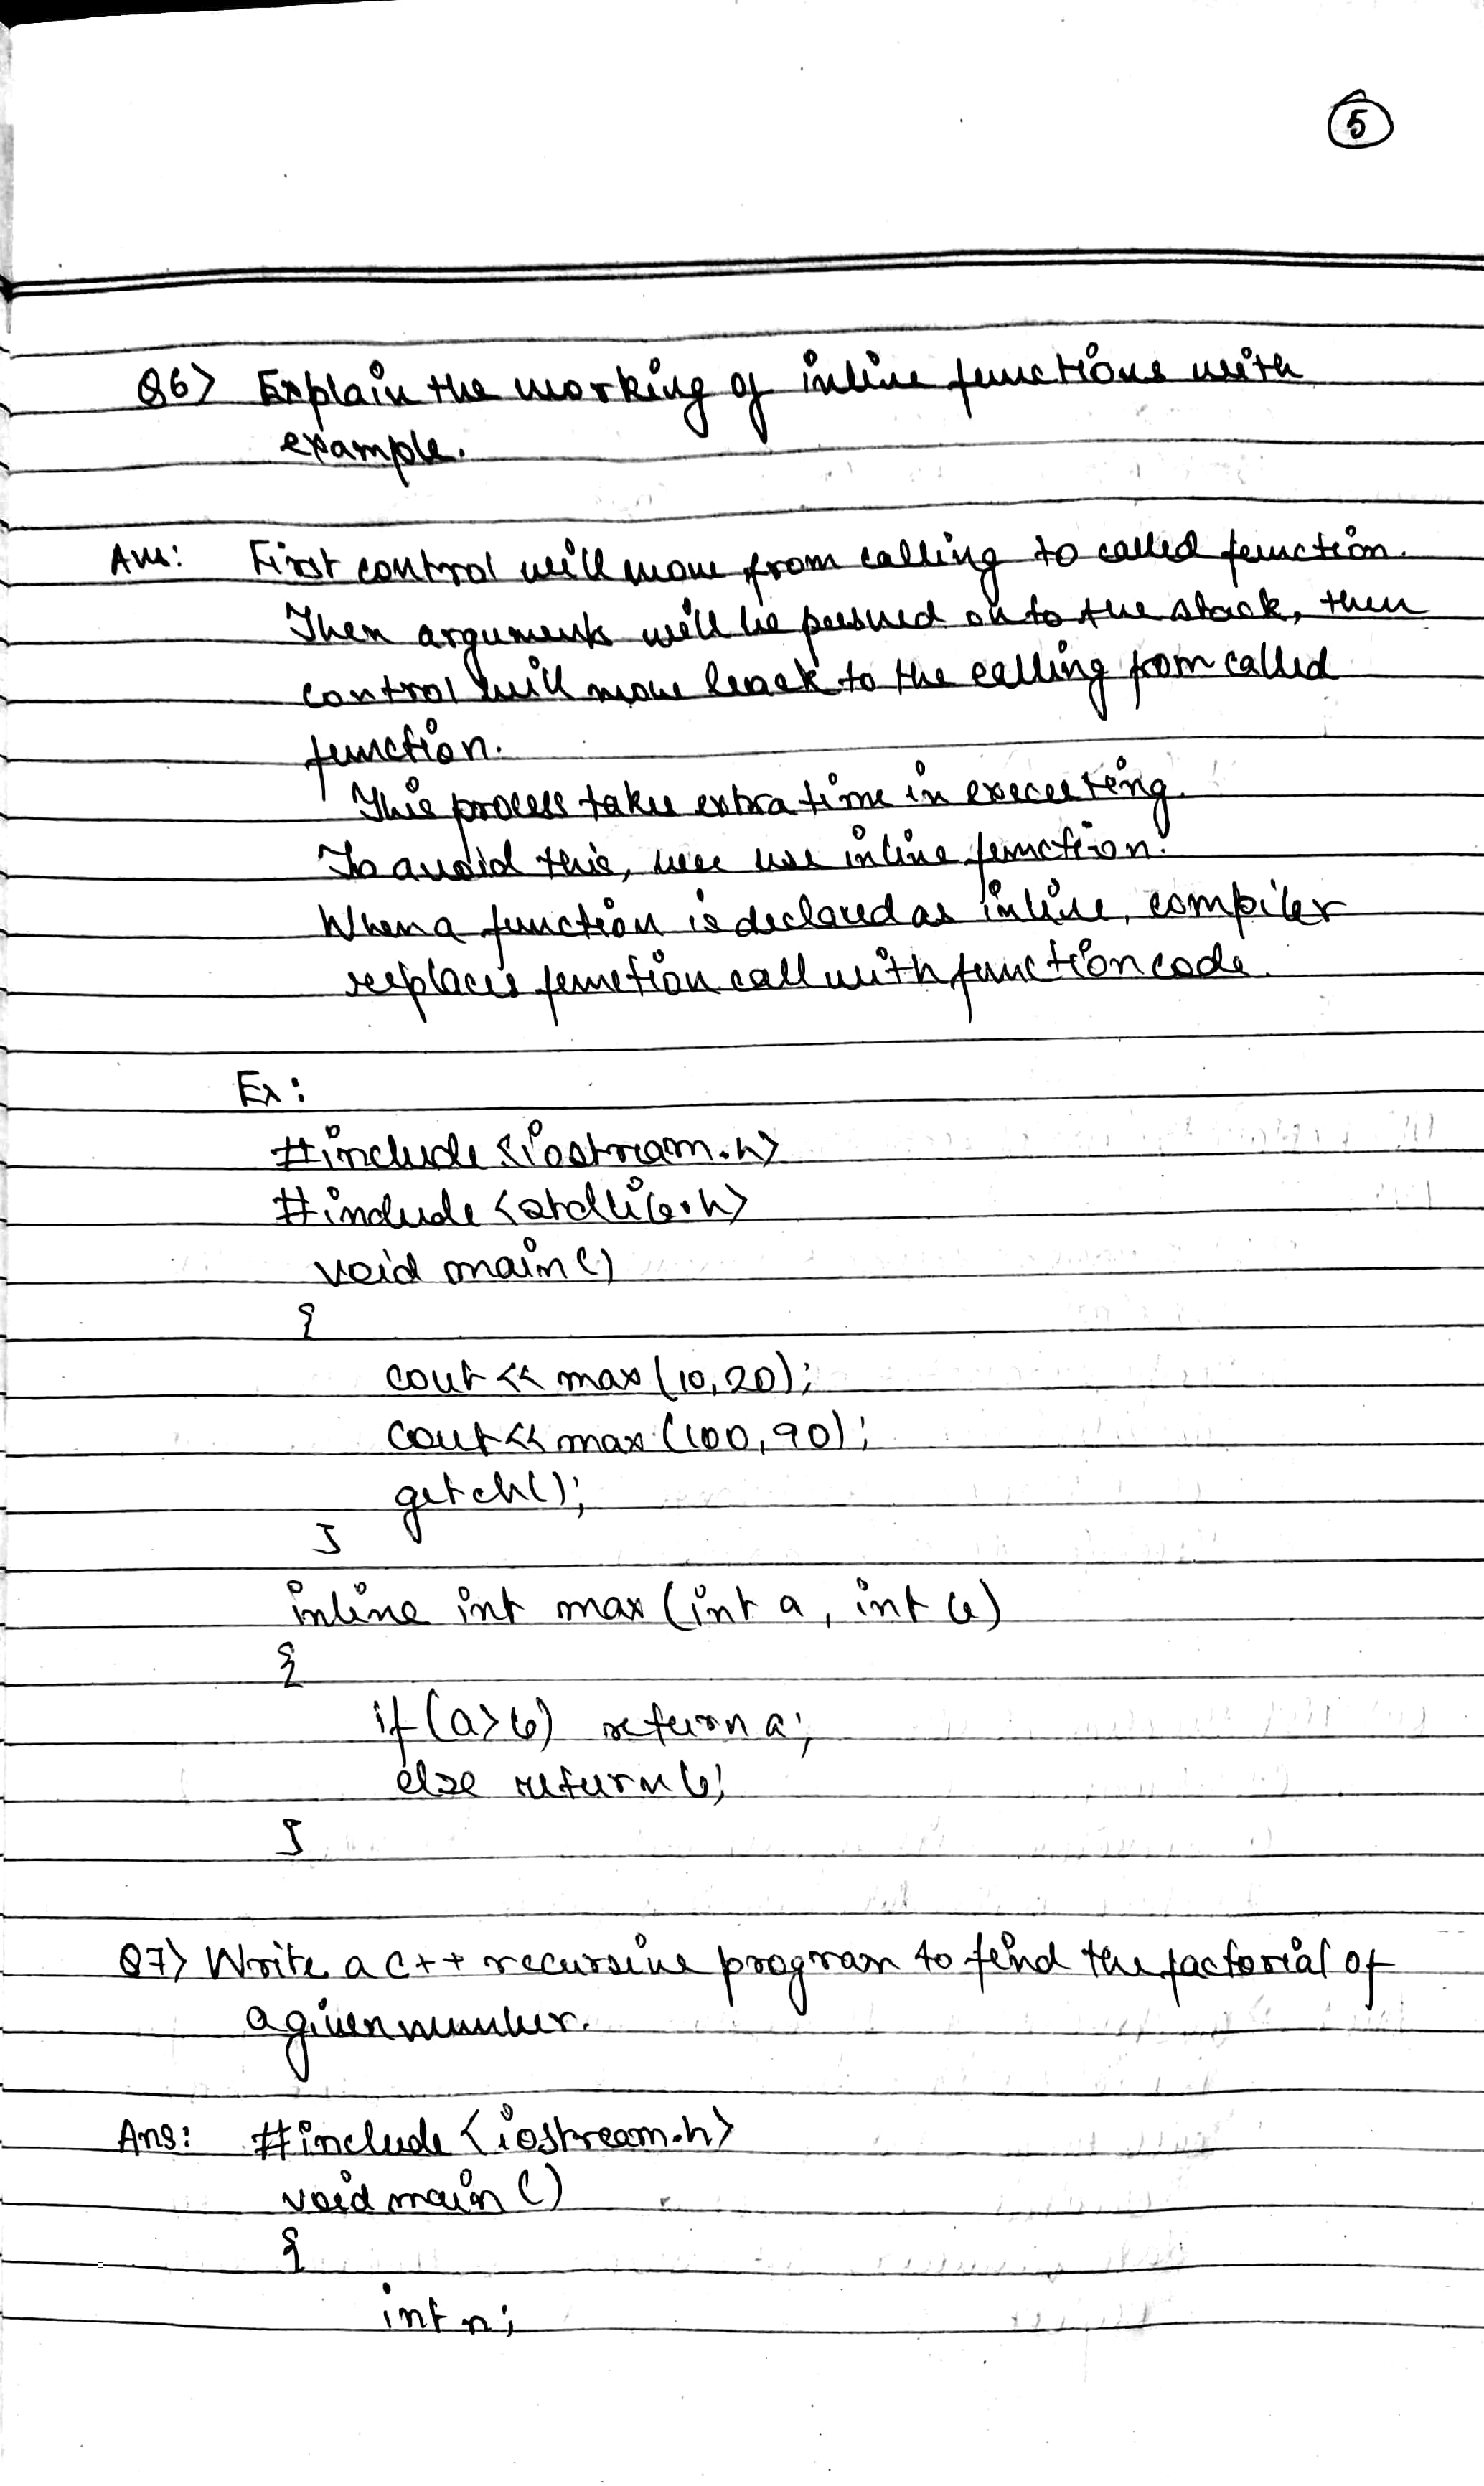 5
Q6> Explain the working of inline functions with
example.
Ans: First control will move from calling to called function.
Then arguments will be pushed on to the stack, then
control will move back to the calling from called
function.
This process takes extra time in executing.
To avoid this, we use inline function.
When a function is declared as inline, compiler
replaces function call with function code.
Ex:
#include <iostream.h>
#include <stdlib.h>
void main()
{
cout << max(10,20);
cout << max(100,90);
getch();
}
inline int max (int a, int b)
{
if (a>b) return a;
else return b;
}
Q7> Write a c++ recursive program to find the factorial of
a given number.
Ans: #include <iostream.h>
void main ()
{
int n;